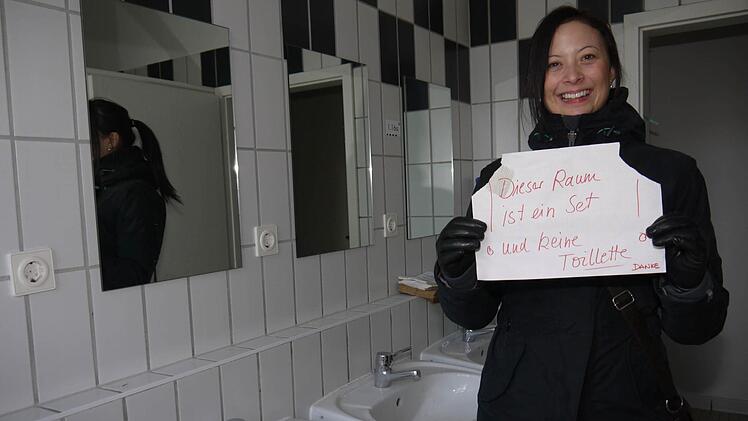 Dieser Raum
ist ein Set
und keine
Toillette
DANKE